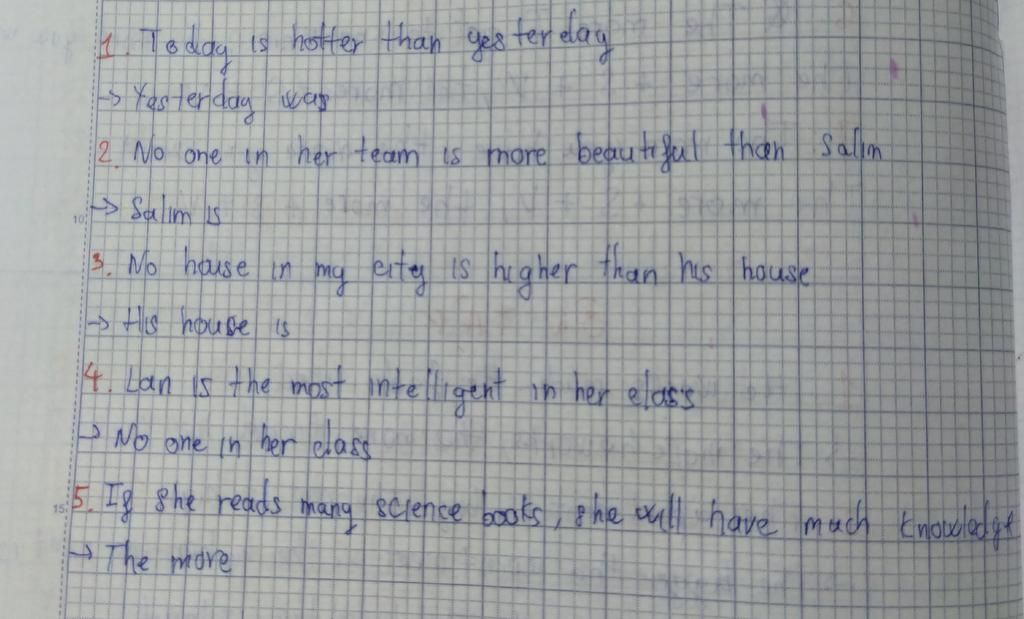 1. Today is hotter than yesterday
→ Yesterday was
2. No one in her team is more beautiful than Salim
10
→ Salim is
3. No house in my city is higher than his house
→ His house is
4. Lan is the most intelligent in her class
→ No one in her class
15
5. If she reads many science books, she will have much knowledge
→ The more